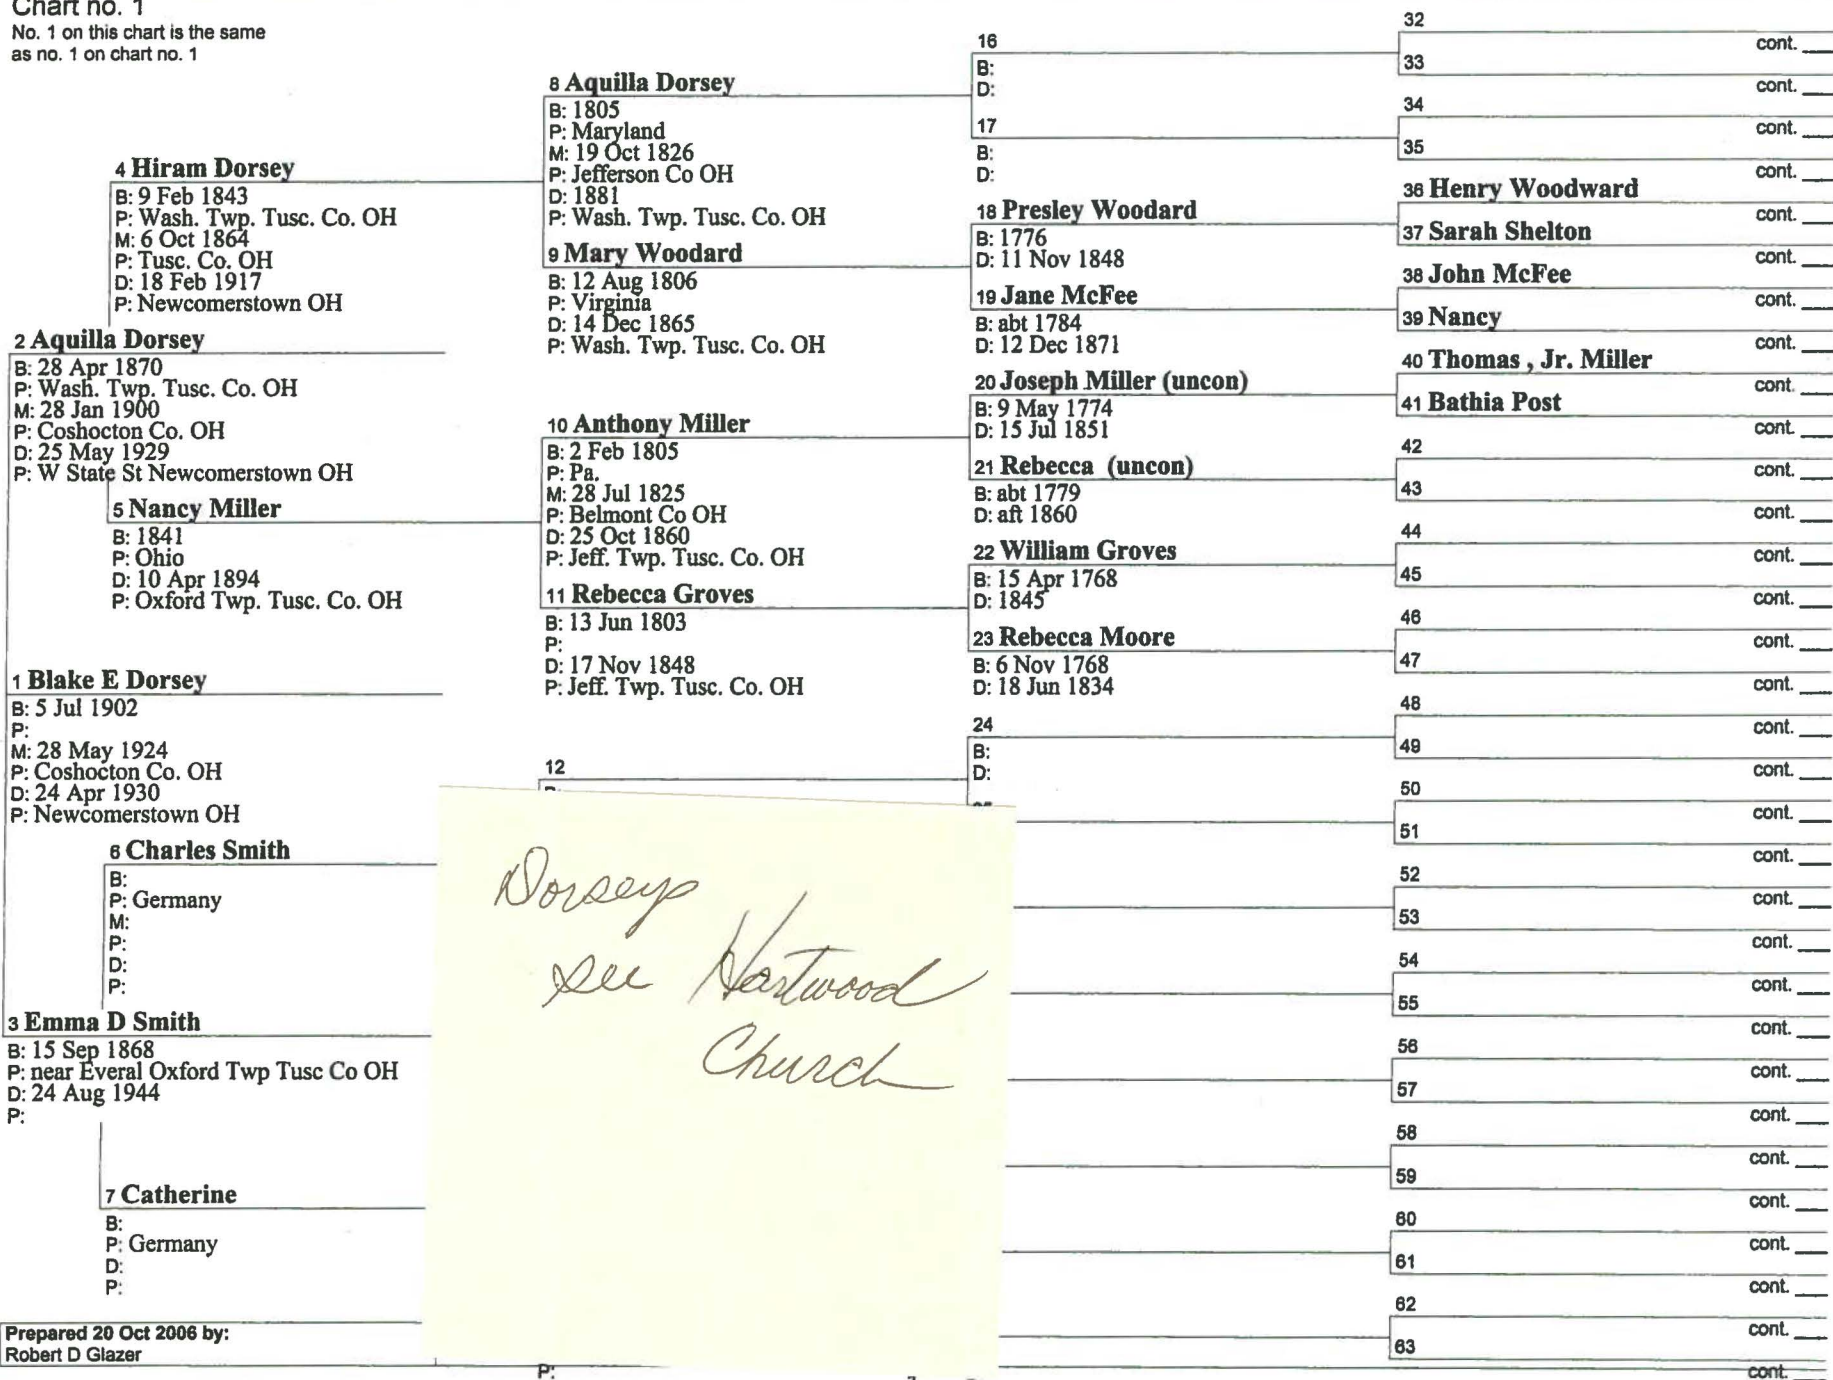 Chart no. 1
No. 1 on this chart is the same
as no. 1 on chart no. 1
2 Aquilla Dorsey
B: 28 Apr 1870
P: Wash. Twp. Tusc. Co. OH
M: 28 Jan 1900
P: Coshocton Co. OH
D: 25 May 1929
P: W State St Newcomerstown OH
1 Blake E Dorsey
B: 5 Jul 1902
P:
M: 28 May 1924
P: Coshocton Co. OH
D: 24 Apr 1930
P: Newcomerstown OH
3 Emma D Smith
B: 15 Sep 1868
P: near Everal Oxford Twp Tusc Co OH
D: 24 Aug 1944
P:
4 Hiram Dorsey
B: 9 Feb 1843
P: Wash. Twp. Tusc. Co. OH
M: 6 Oct 1864
P: Tusc. Co. OH
D: 18 Feb 1917
P: Newcomerstown OH
5 Nancy Miller
B: 1841
P: Ohio
D: 10 Apr 1894
P: Oxford Twp. Tusc. Co. OH
6 Charles Smith
B:
P: Germany
M:
P:
D:
P:
7 Catherine
B:
P: Germany
D:
P:
Prepared 20 Oct 2006 by:
Robert D Glazer
8 Aquilla Dorsey
B: 1805
P: Maryland
M: 19 Oct 1826
P: Jefferson Co OH
D: 1881
P: Wash. Twp. Tusc. Co. OH
9 Mary Woodard
B: 12 Aug 1806
P: Virginia
D: 14 Dec 1865
P: Wash. Twp. Tusc. Co. OH
10 Anthony Miller
B: 2 Feb 1805
P: Pa.
M: 28 Jul 1825
P: Belmont Co OH
D: 25 Oct 1860
P: Jeff. Twp. Tusc. Co. OH
11 Rebecca Groves
B: 13 Jun 1803
P:
D: 17 Nov 1848
P: Jeff. Twp. Tusc. Co. OH
12
Dorseys
see Hartwood
Church
P:
16
B:
D:
17
B:
D:
18 Presley Woodard
B: 1776
D: 11 Nov 1848
19 Jane McFee
B: abt 1784
D: 12 Dec 1871
20 Joseph Miller (uncon)
B: 9 May 1774
D: 15 Jul 1851
21 Rebecca (uncon)
B: abt 1779
D: aft 1860
22 William Groves
B: 15 Apr 1768
D: 1845
23 Rebecca Moore
B: 6 Nov 1768
D: 18 Jun 1834
24
B:
D:
32
cont.
33
cont.
34
cont.
35
cont.
36 Henry Woodward
cont.
37 Sarah Shelton
cont.
38 John McFee
cont.
39 Nancy
cont.
40 Thomas , Jr. Miller
cont.
41 Bathia Post
cont.
42
cont.
43
cont.
44
cont.
45
cont.
46
cont.
47
cont.
48
cont.
49
cont.
50
cont.
51
cont.
52
cont.
53
cont.
54
cont.
55
cont.
56
cont.
57
cont.
58
cont.
59
cont.
60
cont.
61
cont.
62
cont.
63
cont.